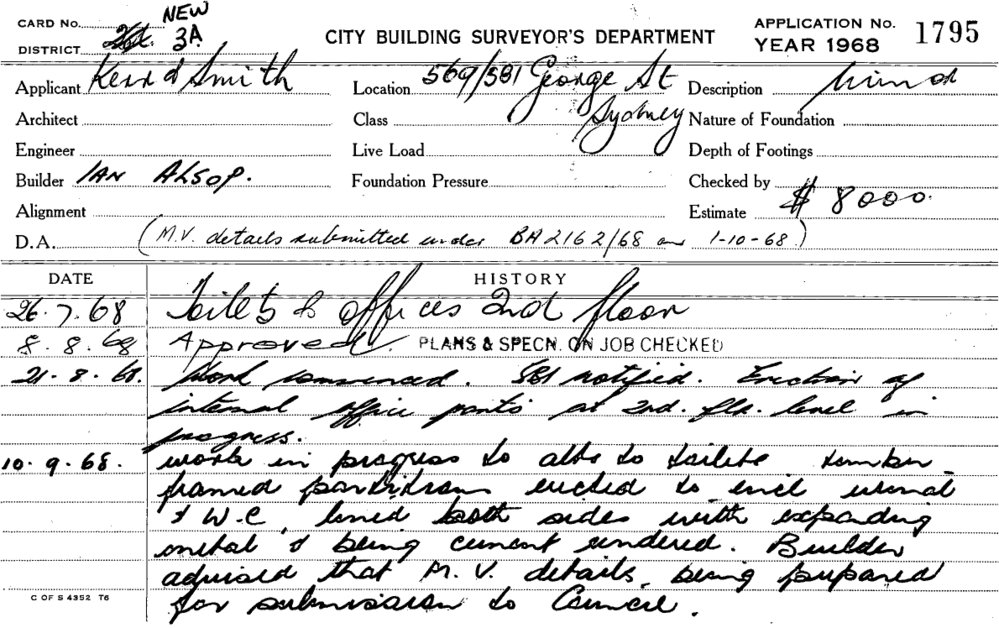 CARD No. NEW
DISTRICT 3A
CITY BUILDING SURVEYOR'S DEPARTMENT
APPLICATION No. 1795
YEAR 1968
Applicant Kerr & Smith Location 569/581 George St Description
Sydney
Architect Class Nature of Foundation
Engineer Live Load Depth of Footings
Builder IAN ALSOP. Foundation Pressure Checked by
Alignment Estimate $ 8000.
D.A. (M.V. details submitted under BA 2162/68 on 1-10-68)
DATE HISTORY
26.7.68 Toilets & offices 2nd floor
8.8.68 Approved. PLANS & SPECN. ON JOB CHECKED
21-8-68. Work commenced. SBI notified. Erection of
internal office parts at 2nd. flr. level in
progress.
10.9.68. work in progress to alts to toilets timber
framed partitions erected to encl urinal
& W.C, lined both sides with expanding
metal & being cement rendered. Builder
advised that M.V. details, being prepared
for submission to Council.
C OF S 4352 T6